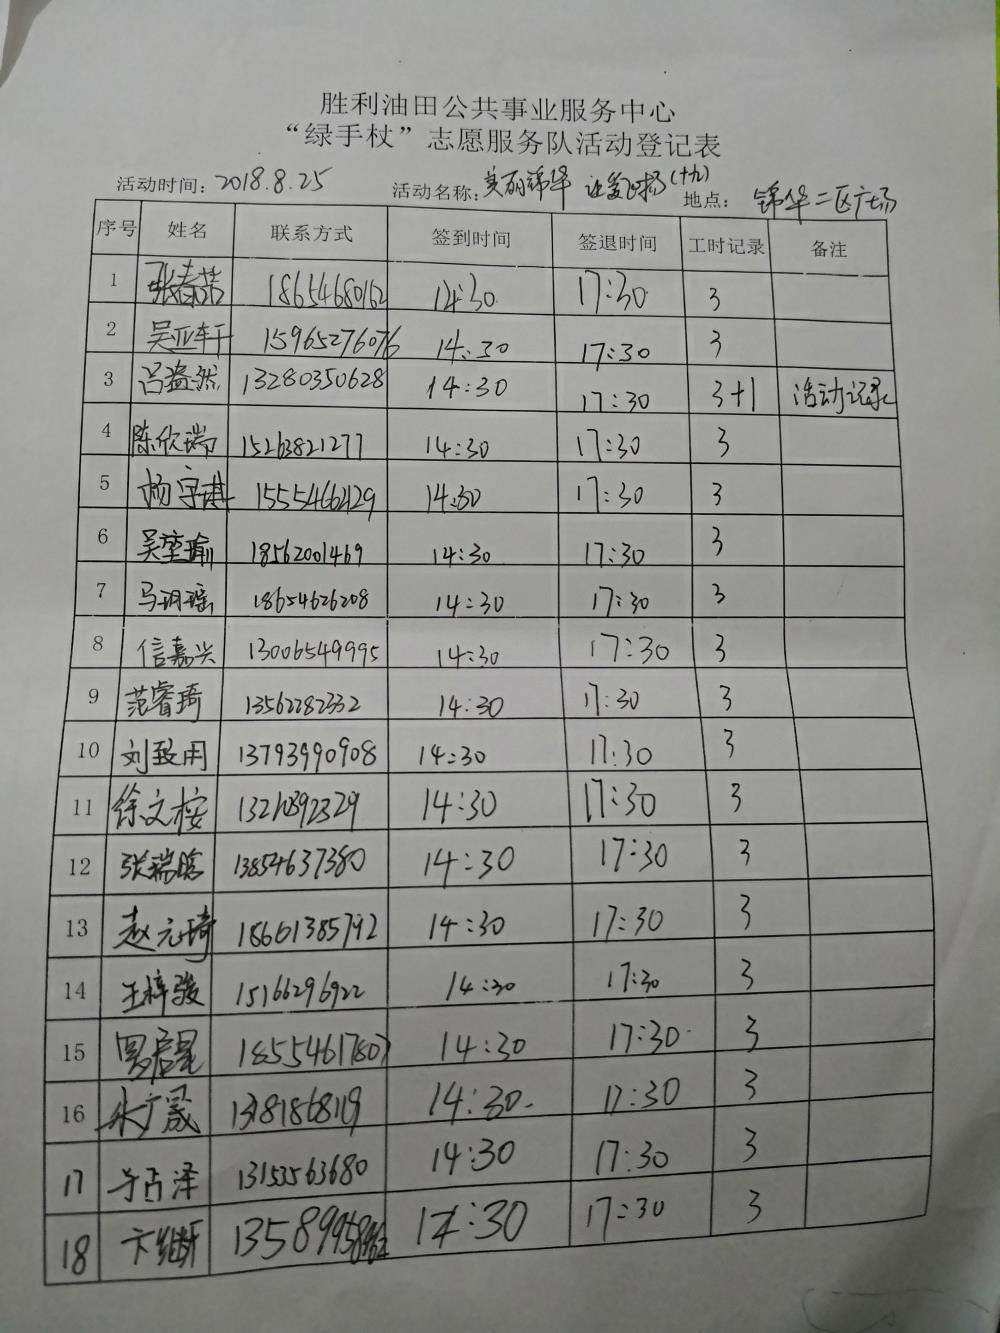 胜利油田公共事业服务中心
“绿手杖”志愿服务队活动登记表
活动时间：2018.8.25 活动名称：美丽锦华 让爱飞扬(十九) 地点： 锦华二区广场
序号 姓名 联系方式 签到时间 签退时间 工时记录 备注
1 张春 18654680162 14:30 17:30 3
2 吴亚轩 15965276076 14:30 17:30 3
3 吕盎然 13280350628 14:30 17:30 3+1 活动记录
4 陈欣瑞 15263821277 14:30 17:30 3
5 杨宇琪 15554662129 14:30 17:30 3
6 吴堃瑜 18562001469 14:30 17:30 3
7 马玥瑶 18654626208 14:30 17:30 3
8 信嘉兴 13006549995 14:30 17:30 3
9 范睿琦 13562282332 14:30 17:30 3
10 刘致用 13793990908 14:30 17:30 3
11 徐文桉 14:30 17:30 3
12 张瑞晗 13854637380 14:30 17:30 3
13 赵元琦 18661385792 14:30 17:30 3
14 王梓骏 15166296922 14:30 17:30 3
15 罗启星 18554617807 14:30 17:30 3
16 广晟 13181868119 14:30 17:30 3
17 占泽 13153563680 14:30 17:30 3
18 卞继昕 14:30 17:30 3